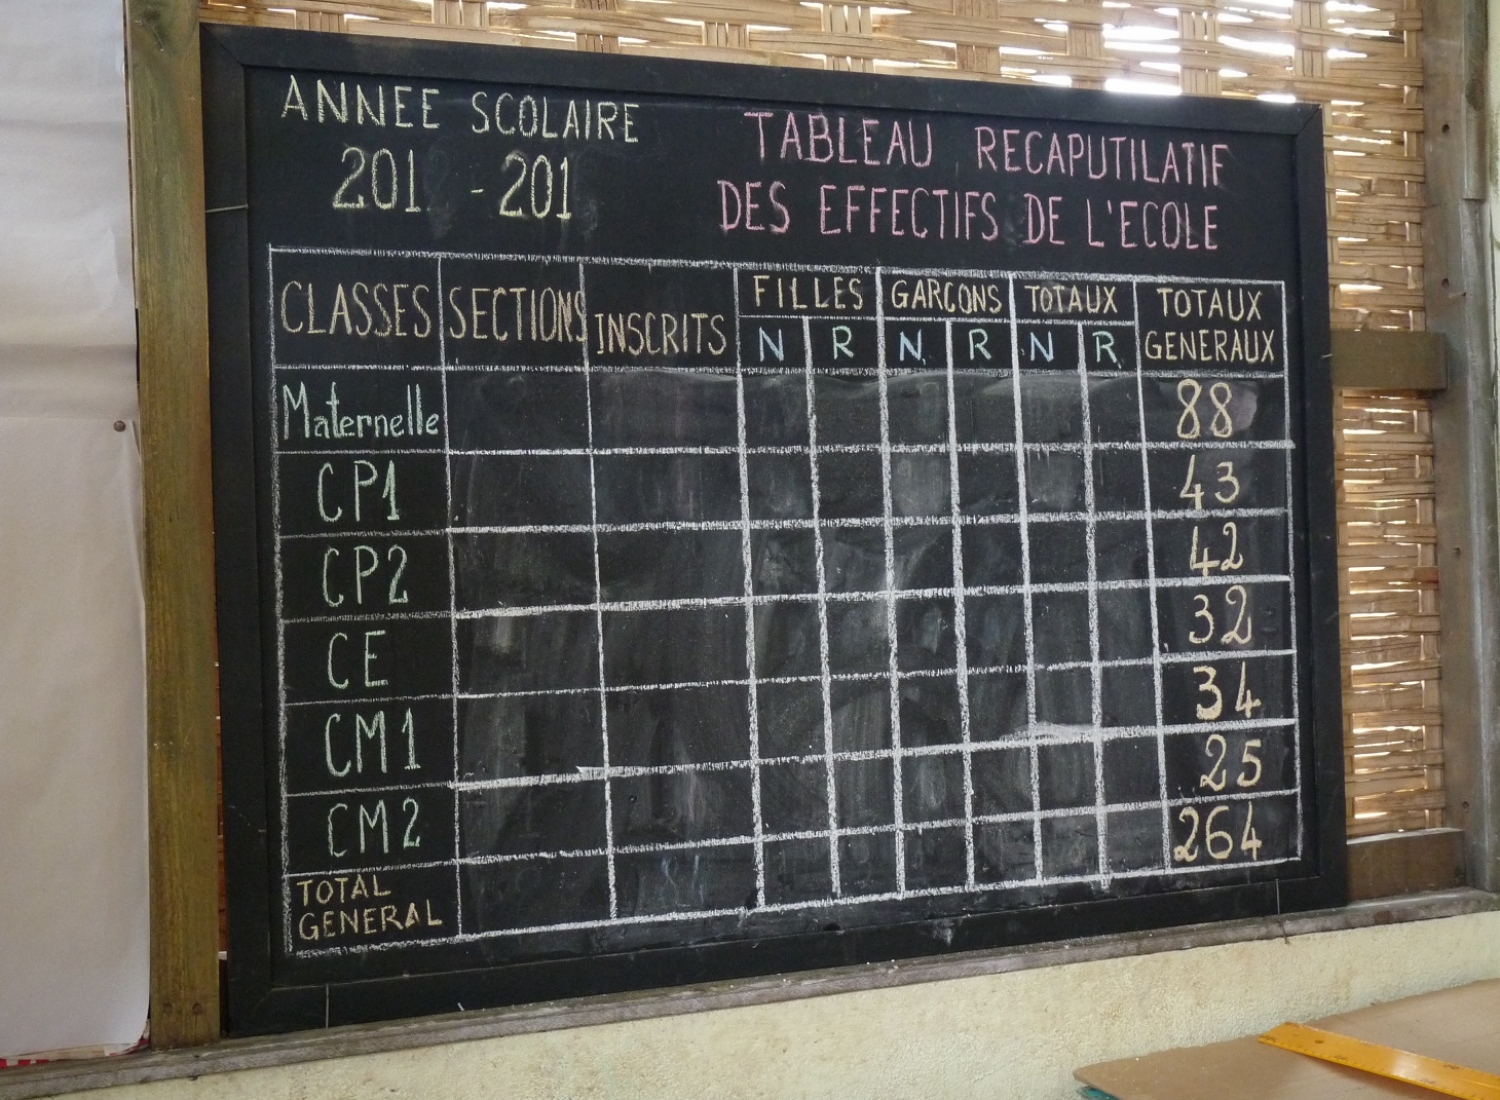 ANNEE SCOLAIRE
201 - 201
TABLEAU RECAPUTILATIF
DES EFFECTIFS DE L'ECOLE
CLASSES SECTIONS INSCRITS FILLES GARCONS TOTAUX TOTAUX GENERAUX
N R N R N R
Maternelle 88
CP1 43
CP2 42
CE 32
CM1 34
CM2 25
TOTAL GENERAL 264